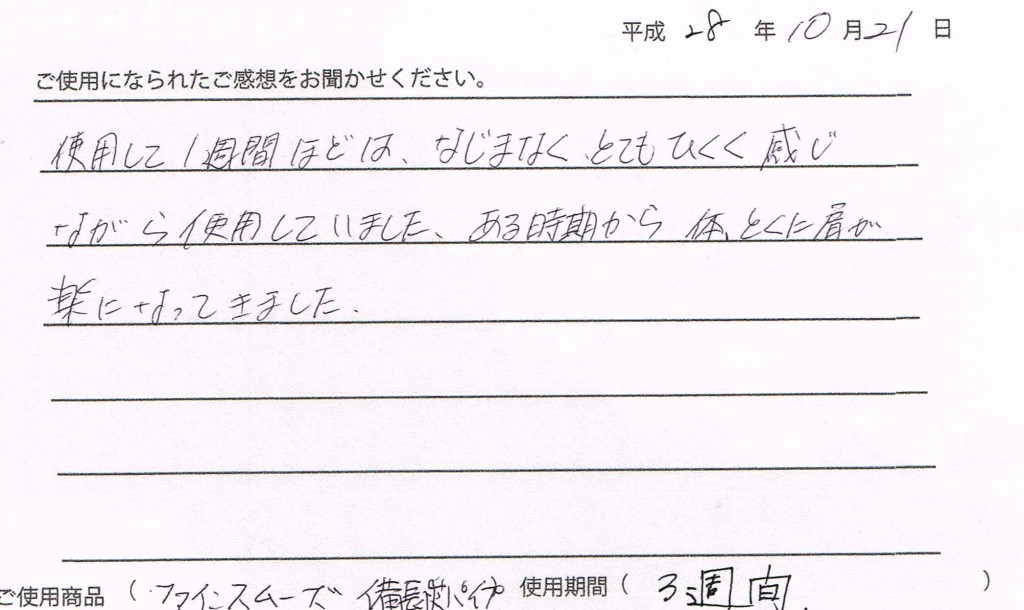 平成 28 年 10 月 21 日
ご使用になられたご感想をお聞かせください。
使用して1週間ほどは、なじまなく、とてもひくく感じ
ながら使用していました、ある時期から 体、とくに肩が
楽になってきました.
ご使用商品 ( ファインスムーズ 備長炭パイプ 使用期間 ( 3週間. )